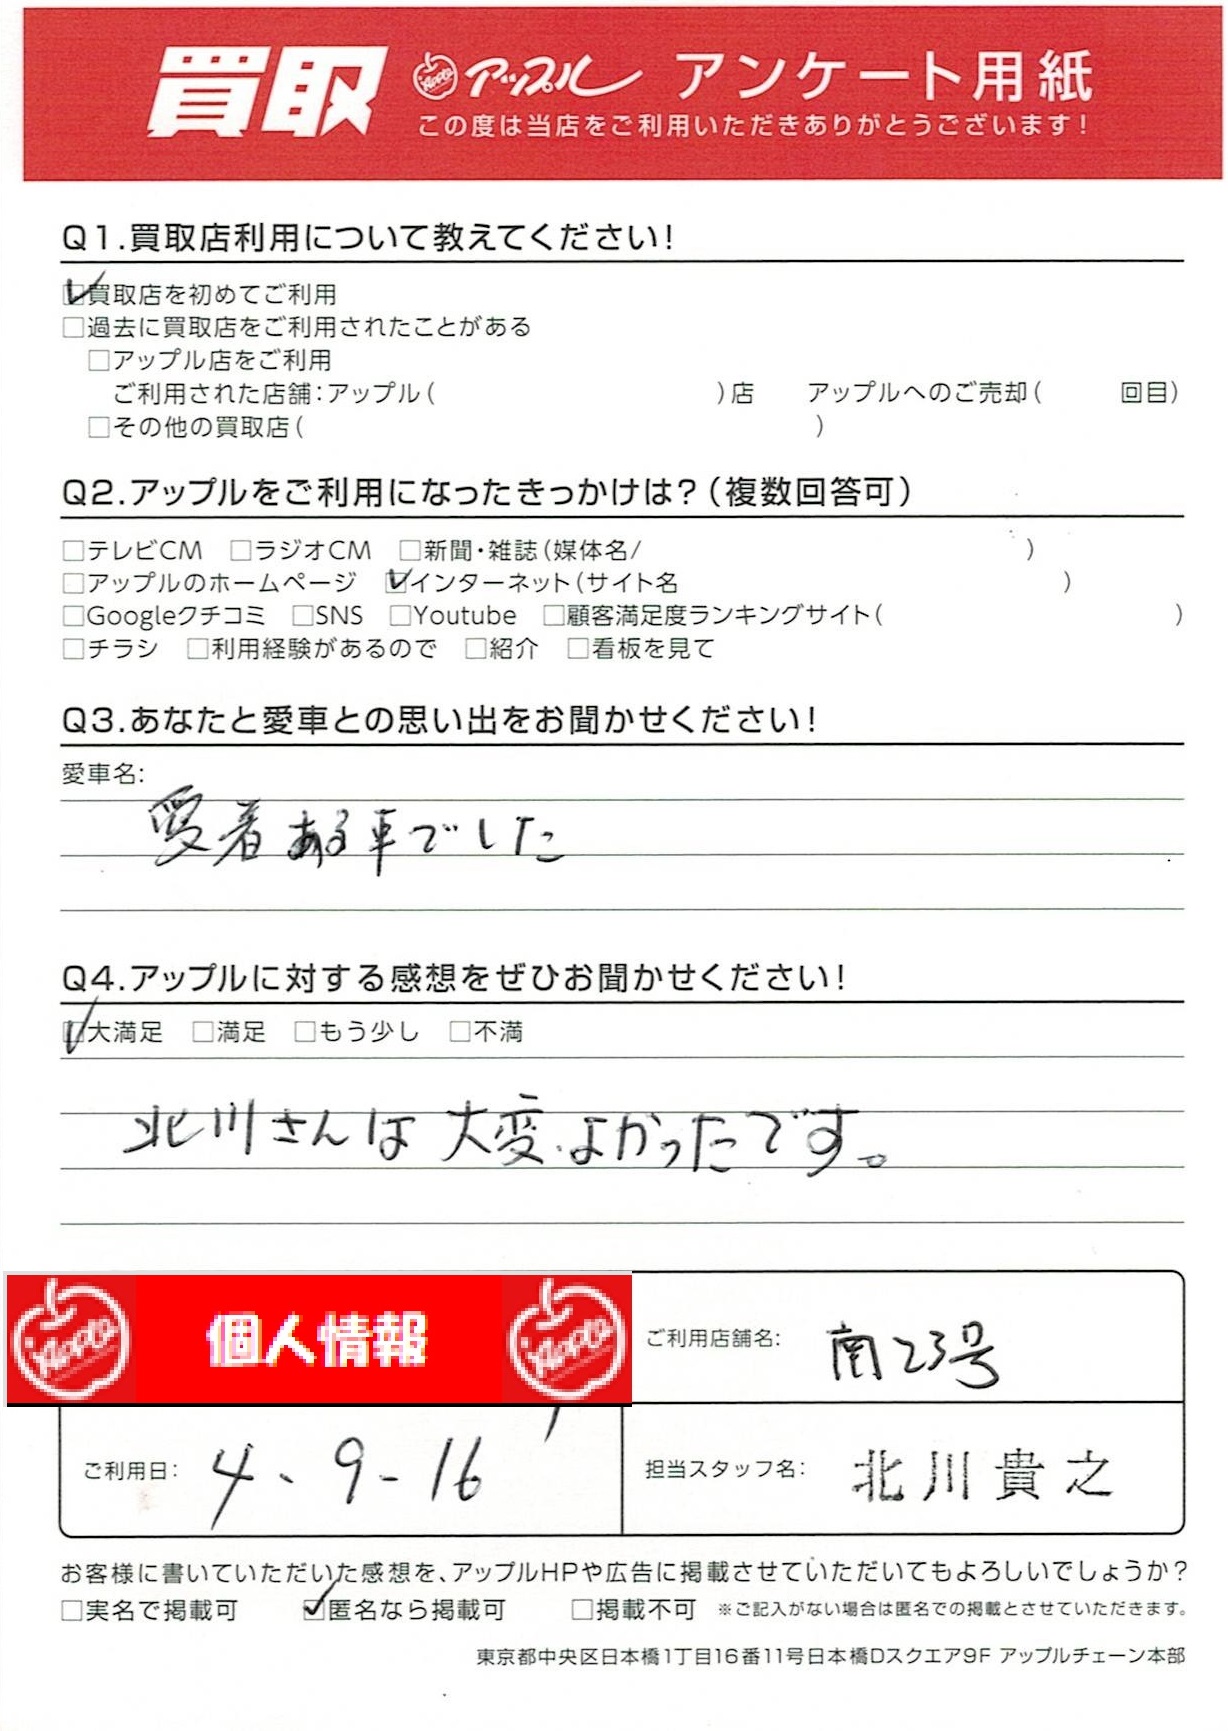 買取 Apple アップル アンケート用紙
この度は当店をご利用いただきありがとうございます！
Q1.買取店利用について教えてください！
☑買取店を初めてご利用
□過去に買取店をご利用されたことがある
□アップル店をご利用
ご利用された店舗：アップル（　　　）店　アップルへのご売却（　　　回目）
□その他の買取店（　　　）
Q2.アップルをご利用になったきっかけは？（複数回答可）
□テレビCM　□ラジオCM　□新聞・雑誌（媒体名/　　　）
□アップルのホームページ　☑インターネット（サイト名　　　）
□Googleクチコミ　□SNS　□Youtube　□顧客満足度ランキングサイト（　　　）
□チラシ　□利用経験があるので　□紹介　□看板を見て
Q3.あなたと愛車との思い出をお聞かせください！
愛車名：
愛着ある車でした
Q4.アップルに対する感想をぜひお聞かせください！
☑大満足　□満足　□もう少し　□不満
北川さんは大変よかったです。
Apple 個人情報 Apple
ご利用店舗名：南23号
ご利用日：4、9-16
担当スタッフ名：北川貴之
お客様に書いていただいた感想を、アップルHPや広告に掲載させていただいてもよろしいでしょうか？
□実名で掲載可　☑匿名なら掲載可　□掲載不可　※ご記入がない場合は匿名での掲載とさせていただきます。
東京都中央区日本橋1丁目16番11号日本橋Dスクエア9F アップルチェーン本部